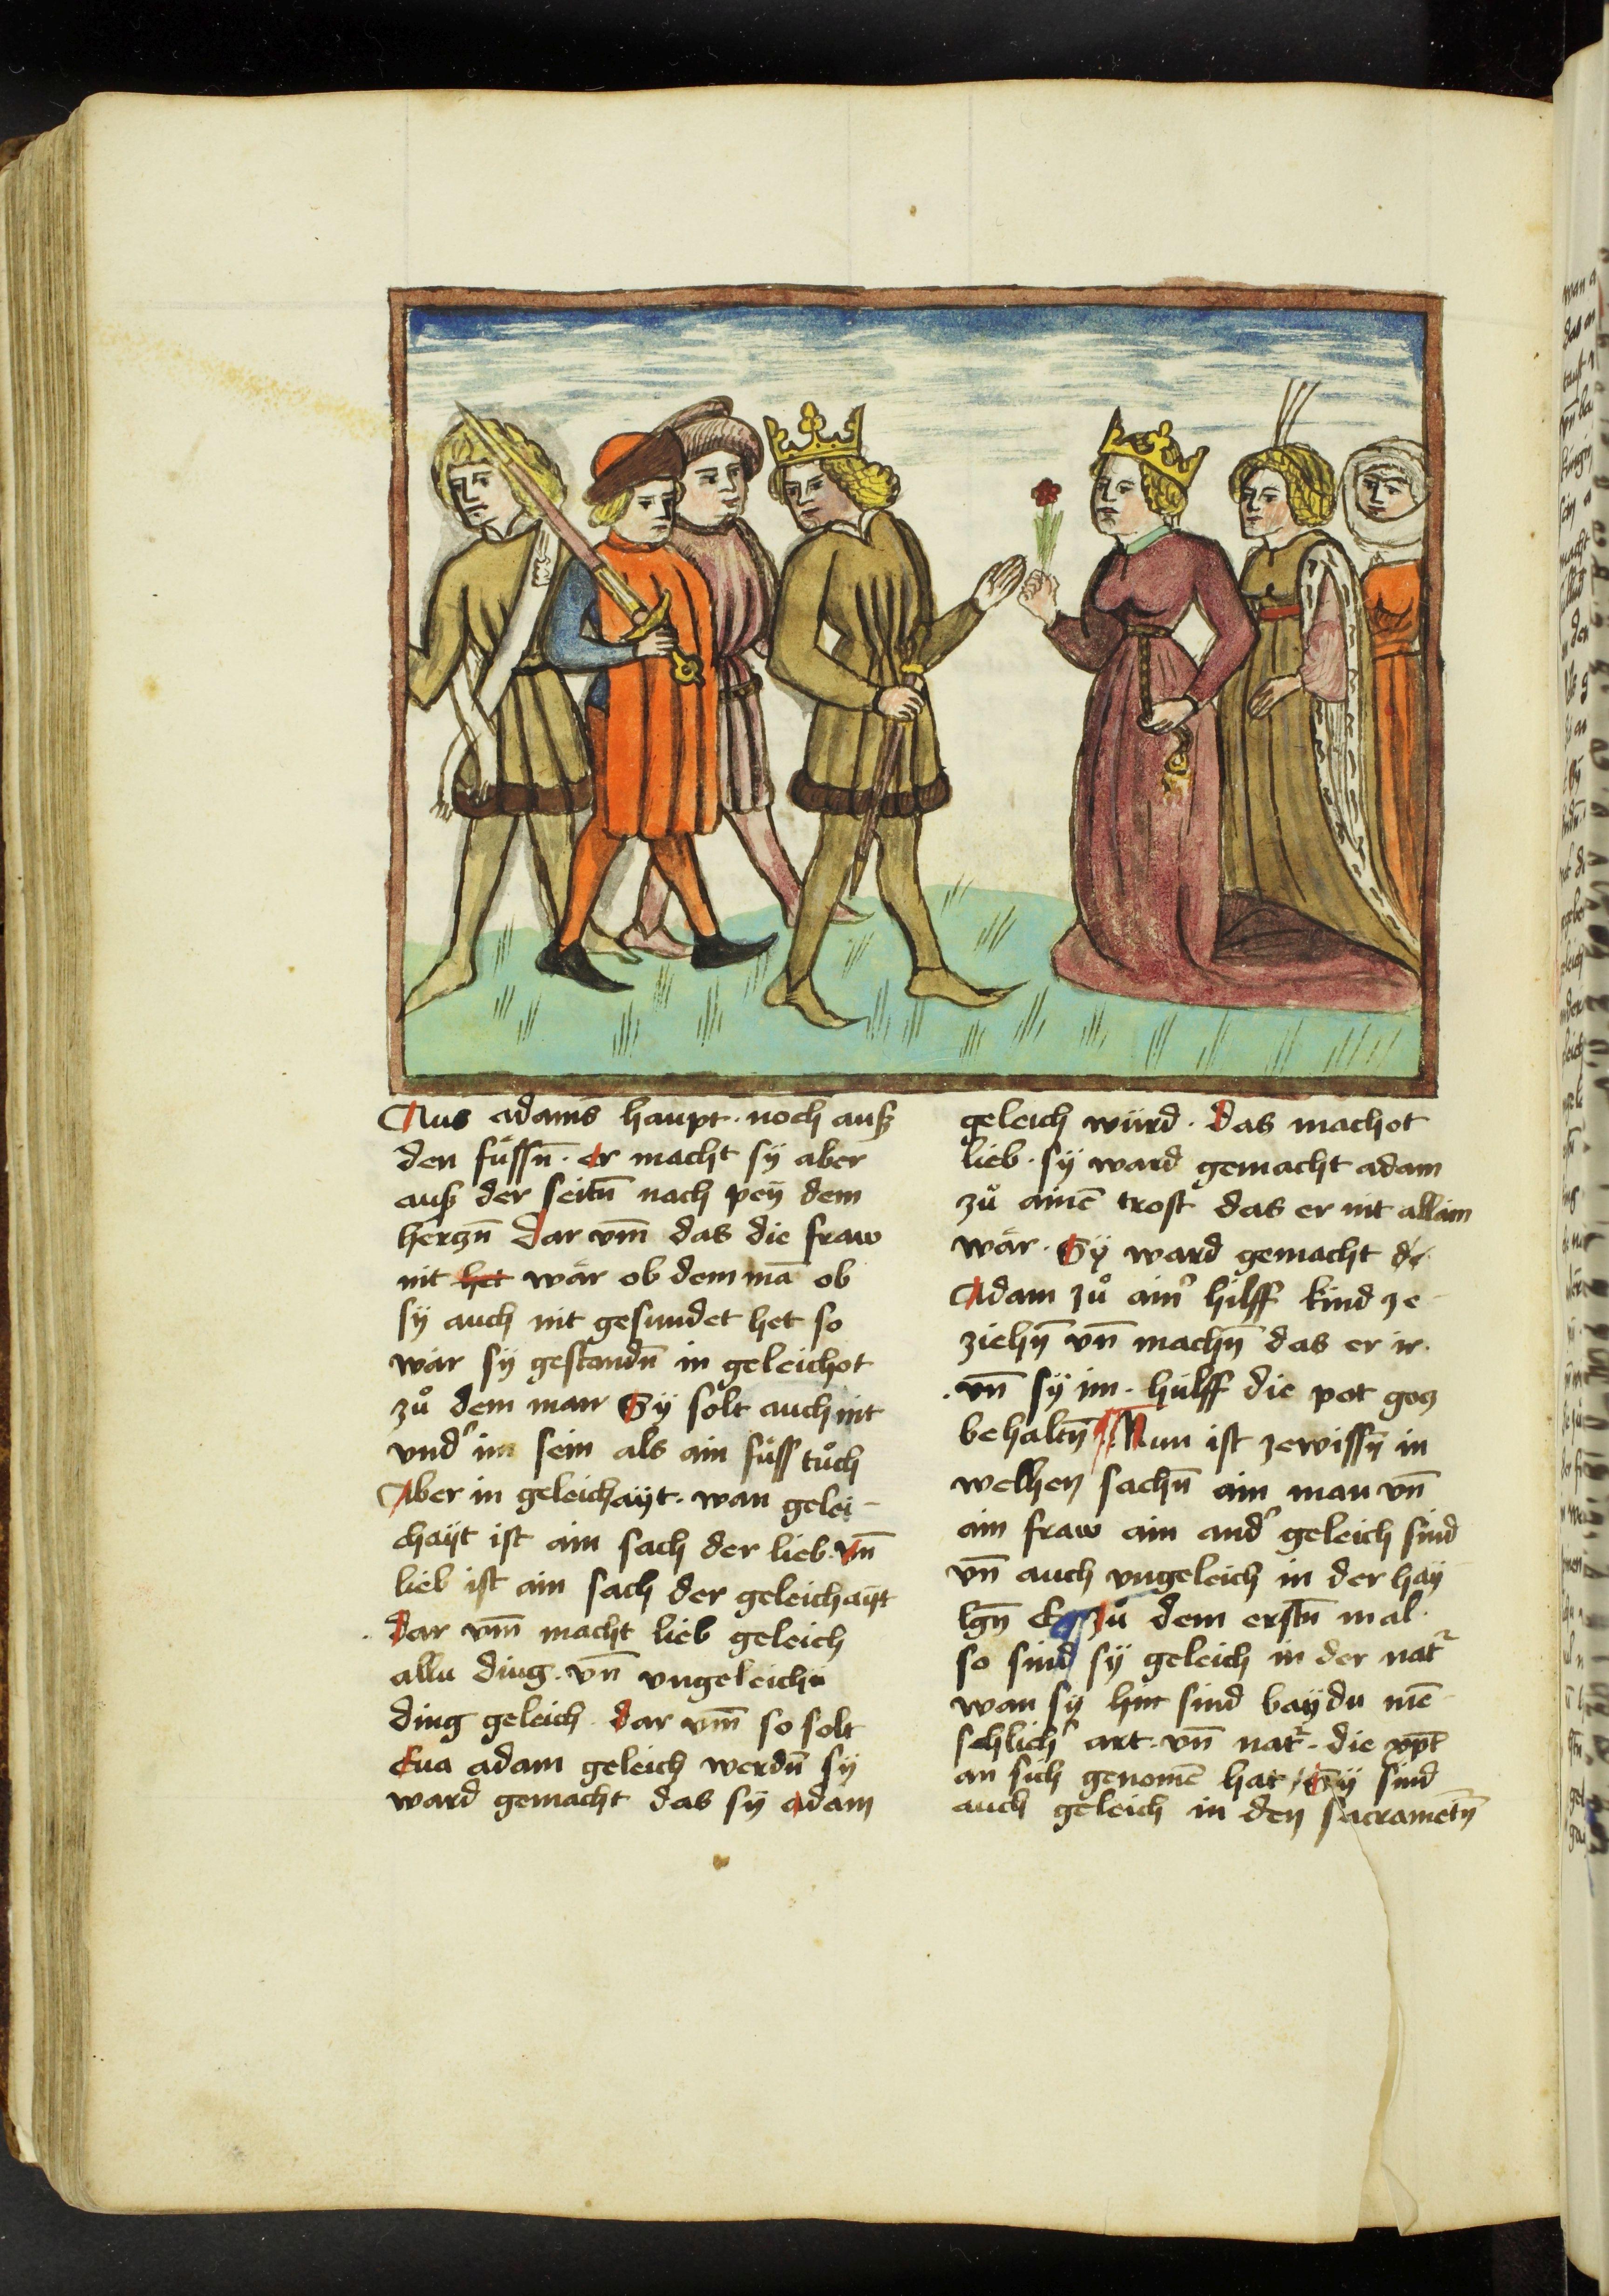 Aus adams haupt · noch auß
den fuͤssn̄ · er macht sÿ aber
auß der seitn̄ nach peÿ dem
herczn̄ Dar vm̄ das die fraw
nit het wär ob dem mā ob
sÿ auch nit gesundet het so
wär sÿ gestandn̄ in geleichot
zuͦ dem man Sÿ solt auch nit
vnd' im sein als ain fuͤss tuͦch
Aber in geleichaÿt · wan gelei-
chaÿt ist ain sach der lieb · vn̄
lieb ist ain sach der geleichaÿt
· Dar vm̄ macht lieb geleich
allu ding · vn̄ vngeleichu
ding geleich · dar vm̄ so solt
Eua adam geleich werdn̄ sÿ
ward gemacht das sÿ adam
geleich würd · Das machot
lieb · sÿ ward gemacht adam
zuͦ ainē trost das er nit allain
wär · Sÿ ward gemacht
Adam zuͦ ain' hilff kind ze
ziehn̄ vn̄ machn̄ das er ir ·
· vn̄ sÿ im · hülff die pot gocz
behaltn̄ Nun ist zewissn̄ in
welhen sachn̄ ain man vn̄
ain fraw ain and' geleich sind
vn̄ auch vngeleich in der haÿ
lgn̄ E zuͦ dem erstn̄ mal ·
so sind sÿ geleich in der nat'
wan sÿ hut sind baÿdu mē
schlich' art · vn̄ nat' · die xp̄t
an sich genomē hat / Sÿ sind
auch geleich in den sacramētn̄